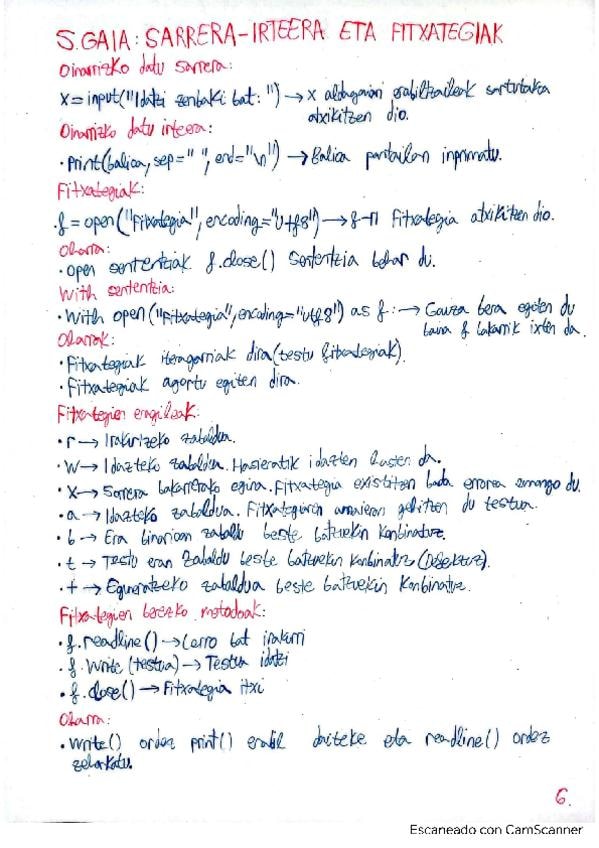 5.GAIA: SARRERA-IRTEERA ETA FITXATEGIAK
Oinarrizko datu sarrera:
x=input("Idatzi zenbaki bat:") → x aldagaiari erabiltzaileak sartutakoa
atxikitzen dio.
Oinarrizko datu irteera:
• Print(balioa, sep=" ", end="\n") → Balioa pantailan inprimatu.
Fitxategiak:
• f = open("Fitxategia", encoding="utf8") → f-ri Fitxategia atxikitzen dio.
Oharra:
• Open sententziak f.close() Sententzia behar du.
With sententzia:
• With open ("Fitxategia", encoding="utf8") as f: → Gauza bera egiten du
baina f bakarrik ixten da.
Oharrak:
• Fitxategiak iteragarriak dira (testu fitxategiak).
• Fitxategiak agortu egiten dira.
Fitxategien eragileak:
• r → Irakurtzeko zabaldua.
• W → Idazteko zabaldua. Hasieratik idazten hasten da.
• X → Sorrera bakarrerako egina. Fitxategia existitzen bada errorea emango du.
• a → Idazteko zabaldua. Fitxategiaren amaieran gehitzen du testua.
• b → Era binarioan zabaldu beste batzuekin konbinatuz.
• t → Testu eran zabaldu beste batzuekin konbinatuz (Defektuz).
• + → Eguneratzeko zabaldua beste batzuekin konbinatuz.
Fitxategien berezko metodoak:
• f.readline() → Lerro bat irakurri
• f.Write (testua) → Testua idatzi
• f.close() → Fitxategia itxi
Oharra:
• Write() ordez print() erabil daiteke eta readline() ordez
zeharkatu.
6.
Escaneado con CamScanner